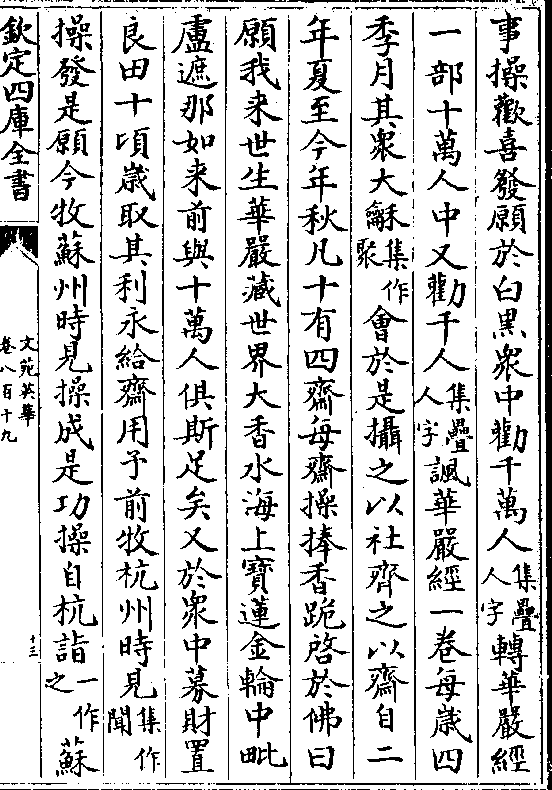 事操歡喜發願於白黒衆中勸千萬人集疊人字轉華嚴經
一部十萬人中又勸千人集疊人字諷華嚴經一卷每歳四
季月其衆大龢集作聚會於是攝之以社齊之以齋自二
年夏至今年秋凡十有四齋每齋操捧香跪啓於佛曰
願我来世生華嚴藏世界大香水海上寶蓮金輪中毗
盧遮那如来前與十萬人俱斯足矣又於衆中募財置
良田十頃歳取其利永給齋用予前牧杭州時見集作聞
操發是願今牧蘇州時見操成是功操自杭詣一作之蘇
欽定四庫全書
文苑英華
卷八百十九
十三